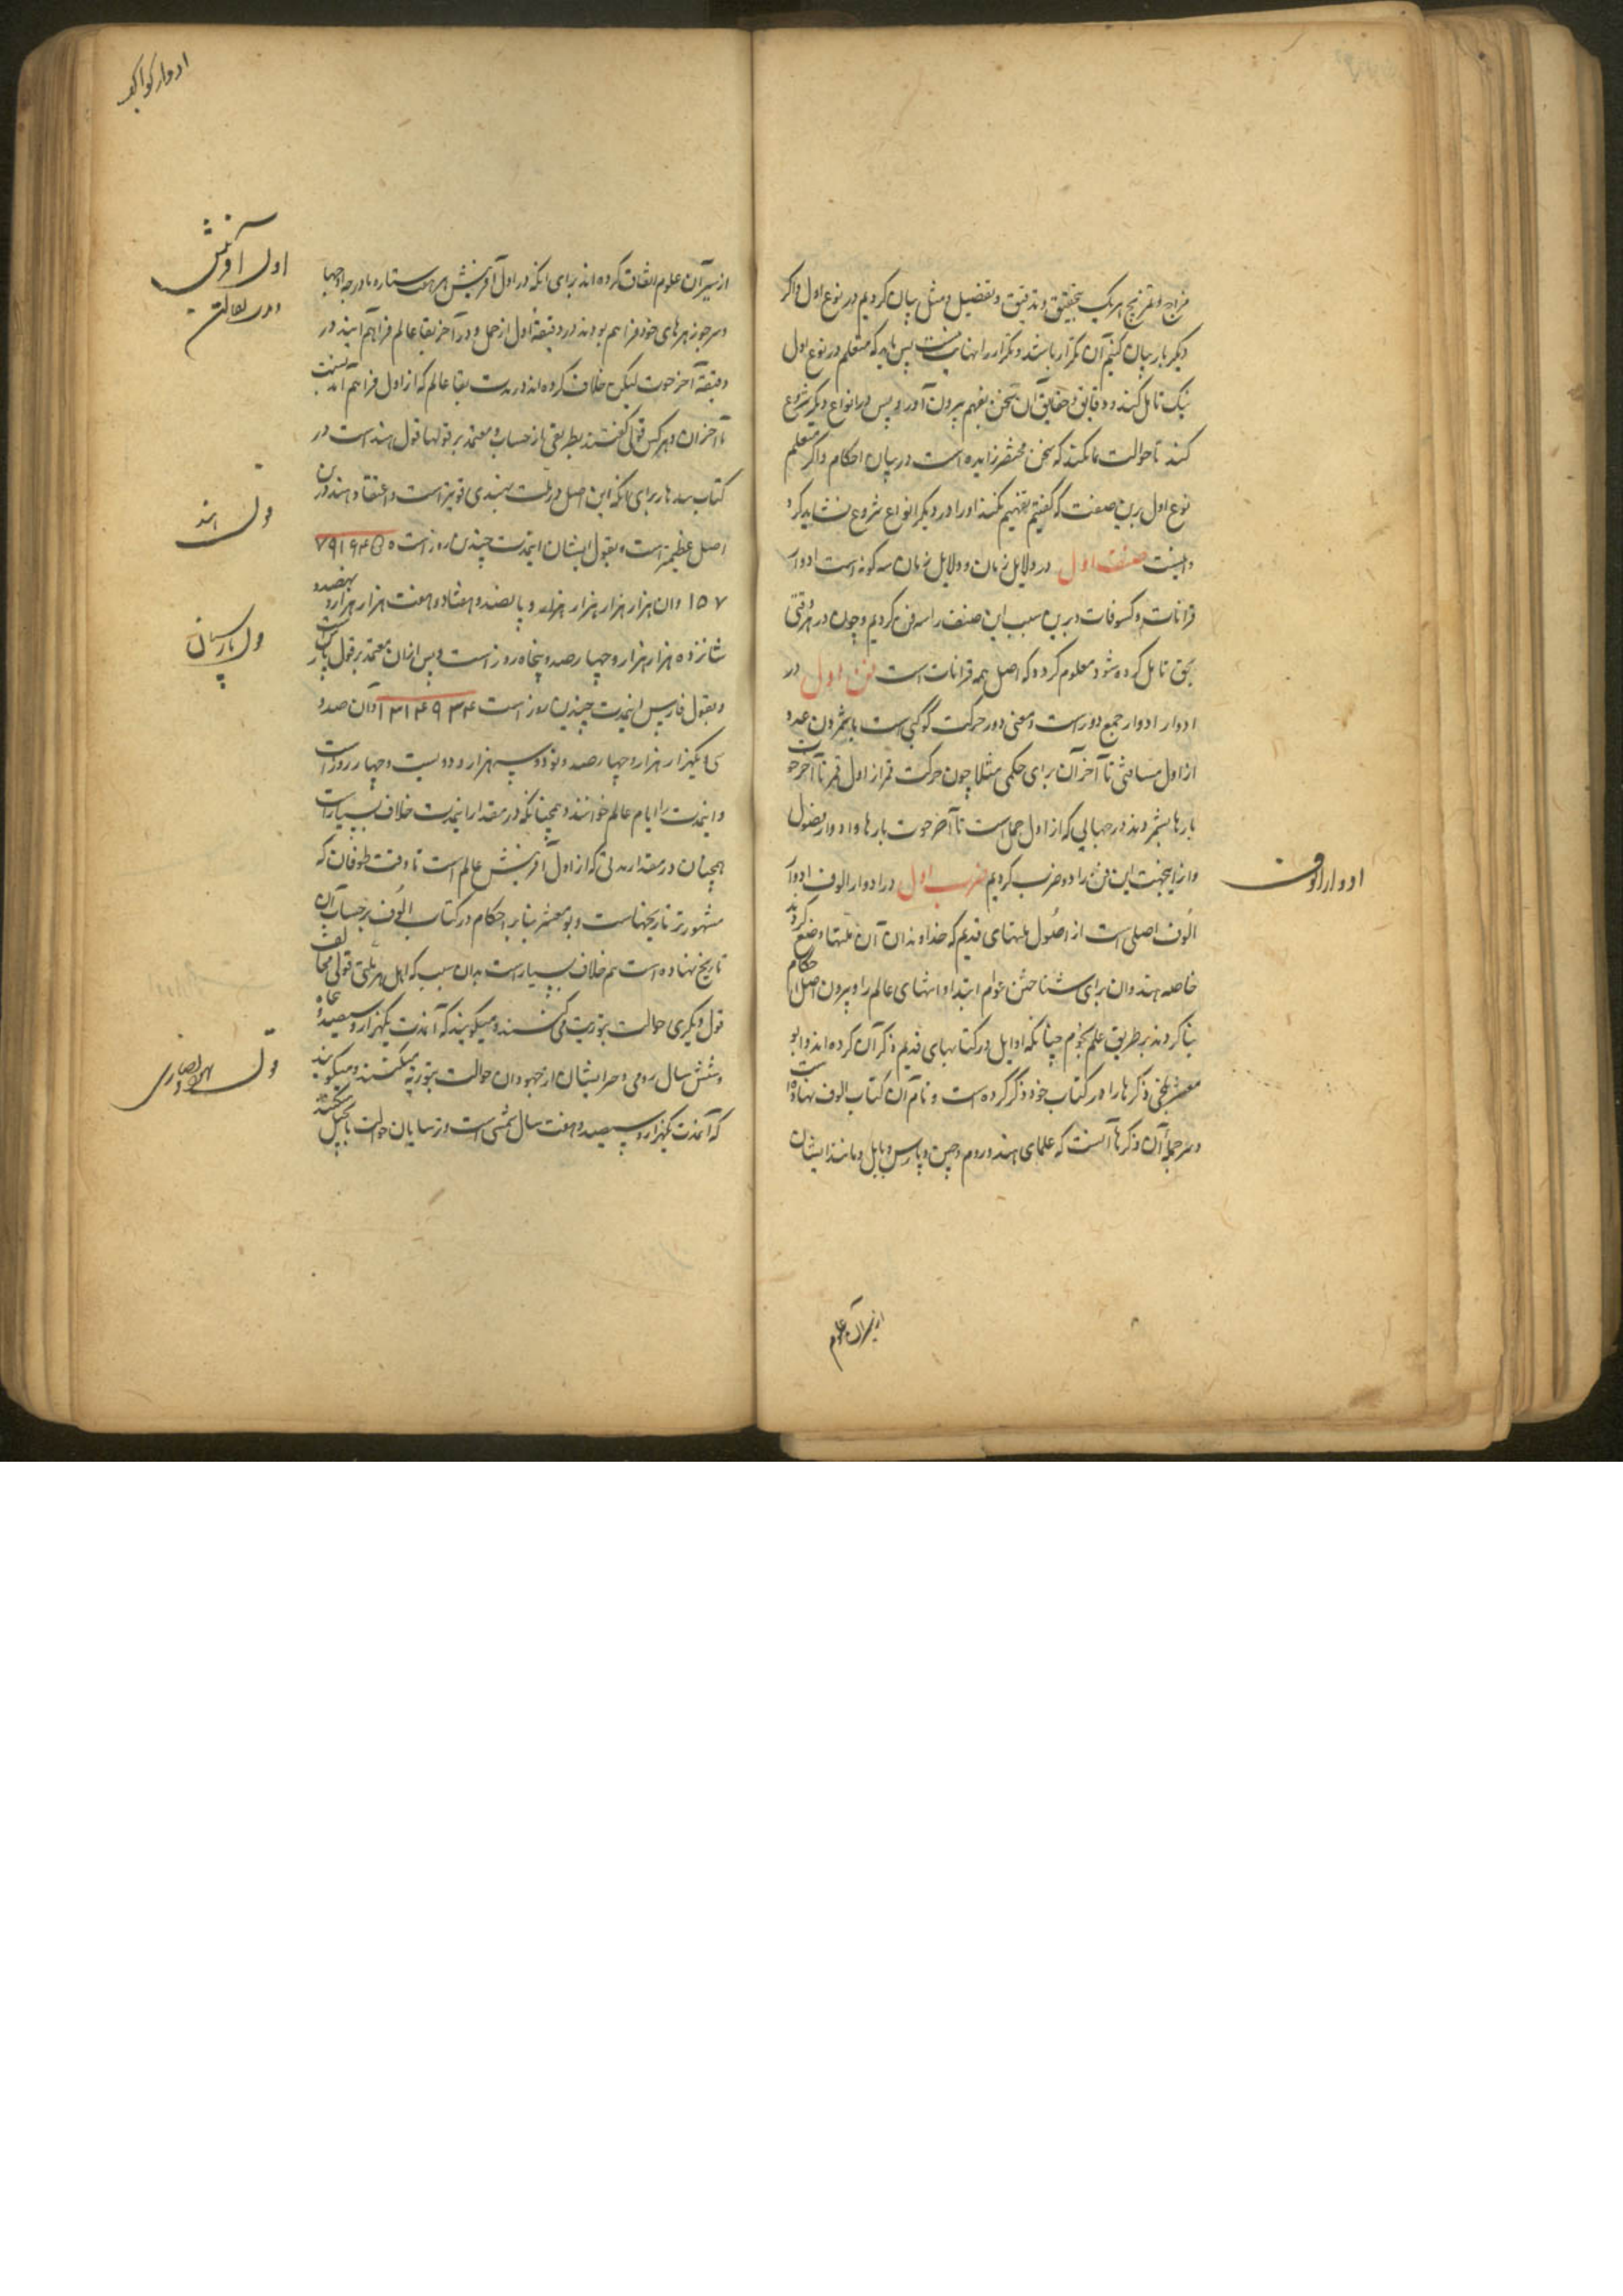 مزاج و تمزیج هر یک بتحقیق و تدقیق و تفضیل و مثل بیان کردیم در نوع اول و اکر
دیکر بار بیان کنیم آن تکرار باشد و تکرار را نهایت نیست پس باید که متعلم در نوع اول
نیک تامل کند و دقایق و حقایق آن سخن بفهم بیرون آورد و پس در انواع دیکر شروع
کند تا حوالت ما نکند که سخن مختصر زاییده است در بیان احکام و اکر متعلم
نوع اول برین صفت که کفتیم تفهیم نکند او را در دیکر انواع شروع نشاید کرد
و اینست صنف اول در دلایل زمان و دلایل زمان سه کونه است ادوار
قرانات و کسوفات و برین سبب این صنف را سه فن کردیم و چون در هر وقتی
بحق تامل کرده شود معلوم کردد که اصل همه قرانات است فن اول در
ادوار ادوار جمع دور است و معنی دور حرکت کوکبی است باشمردن عدد
از اول مسافتی تا آخر آن برای حکمی مثلا چون حرکت قمر از اول تا آخر حوت
بارها بشمردند در جهانی که از اول حمل است تا آخر حوت بارها و ادوار بفضول
و از اینجهت این فن را دو ضرب کردیم ضرب اول در ادوار الوف ادوار
ادوار الوف
الوف اصلی است از اصول ملتهای قدیم که خداوندان آن ملتها وضع کردند
خاصه هندوان برای شناختن عوام ابتدا و انتهای عالم را و بیرون اصل احکام
بنا کردند بر طریق علم نجوم چنانکه اوایل در کتابهای قدیم ذکر آن کرده اند و ابو
معشر بلخی ذکرها را در کتاب خود ذکر کرده است و نام آن کتاب الوف نهاده است
و سرجمله آن ذکرها آنست که علمای هند و روم و چین و پارس و بابل و مانند ایشان
از بیران علوم
ادوار کواکب
از بیران علوم اتفاق کرده اند برای آنکه در اول آفرینش هر هفت ستاره با درجه اوجها
اول آفرینش
و سر جوزهرهای خود فراهم بودند در دقیقه اول از حمل و در آخر بقا عالم فراهم آیند در
دقیقه آخر حوت لیکن خلاف کرده اند در مدت بقا عالم که از اول فراهم آمدنست
تا آخر آن و هر کس قولی کفتند بطریقی از حساب و معتمد بر قولها قول هند است در
کتاب سدهار برای آنکه این اصل در ملت هندی قویتر است و اعتقاد هند درین
قول هند
اصل عظیم است و بقول ایشان اینمدت چندین روز است ۷۹۱۶۴۵۰
۱۵۷ و آن هزار هزار هزار هزار و پانصد و هفتاد و هفت هزار هزار و نهصد و
شانزده هزار هزار و چهارصد و پنجاه روز است و پس از آن معتمد بر قول پارسیانست
قول پارسیان
و بقول فارس اینمدت چندین روز است ۱۳۱۴۹۳۴ و آن صد و
سی و یکهزار هزار و چهارصد و نود و سه هزار و دویست و چهار روز است
و اینمدت را ایام عالم خوانند و همچنانکه در مقدار اینمدت خلاف بسیار است
همچنان در مقدار مدتی که از اول آفرینش عالم است تا وقت طوفان که
مشهورتر تاریخهاست و بو معشر بنا بر احکام در کتاب الوف بر حساب آن
تاریخ نهاده است هم خلاف بسیار است بدان سبب که اهل هر ملتی قولی مخالف
قول دیکری حوالت بتوریت می کنند و میکویند که آنمدت یکهزار و سیصد و
و شش سال رومی و جز ایشان از جهودان حوالت بتوریة میکنند و میکویند
قول یهود و نصاری
که آنمدت یکهزار و سیصد و هفت سال شمسی است و ترسایان حوالت بانجیل میکنند